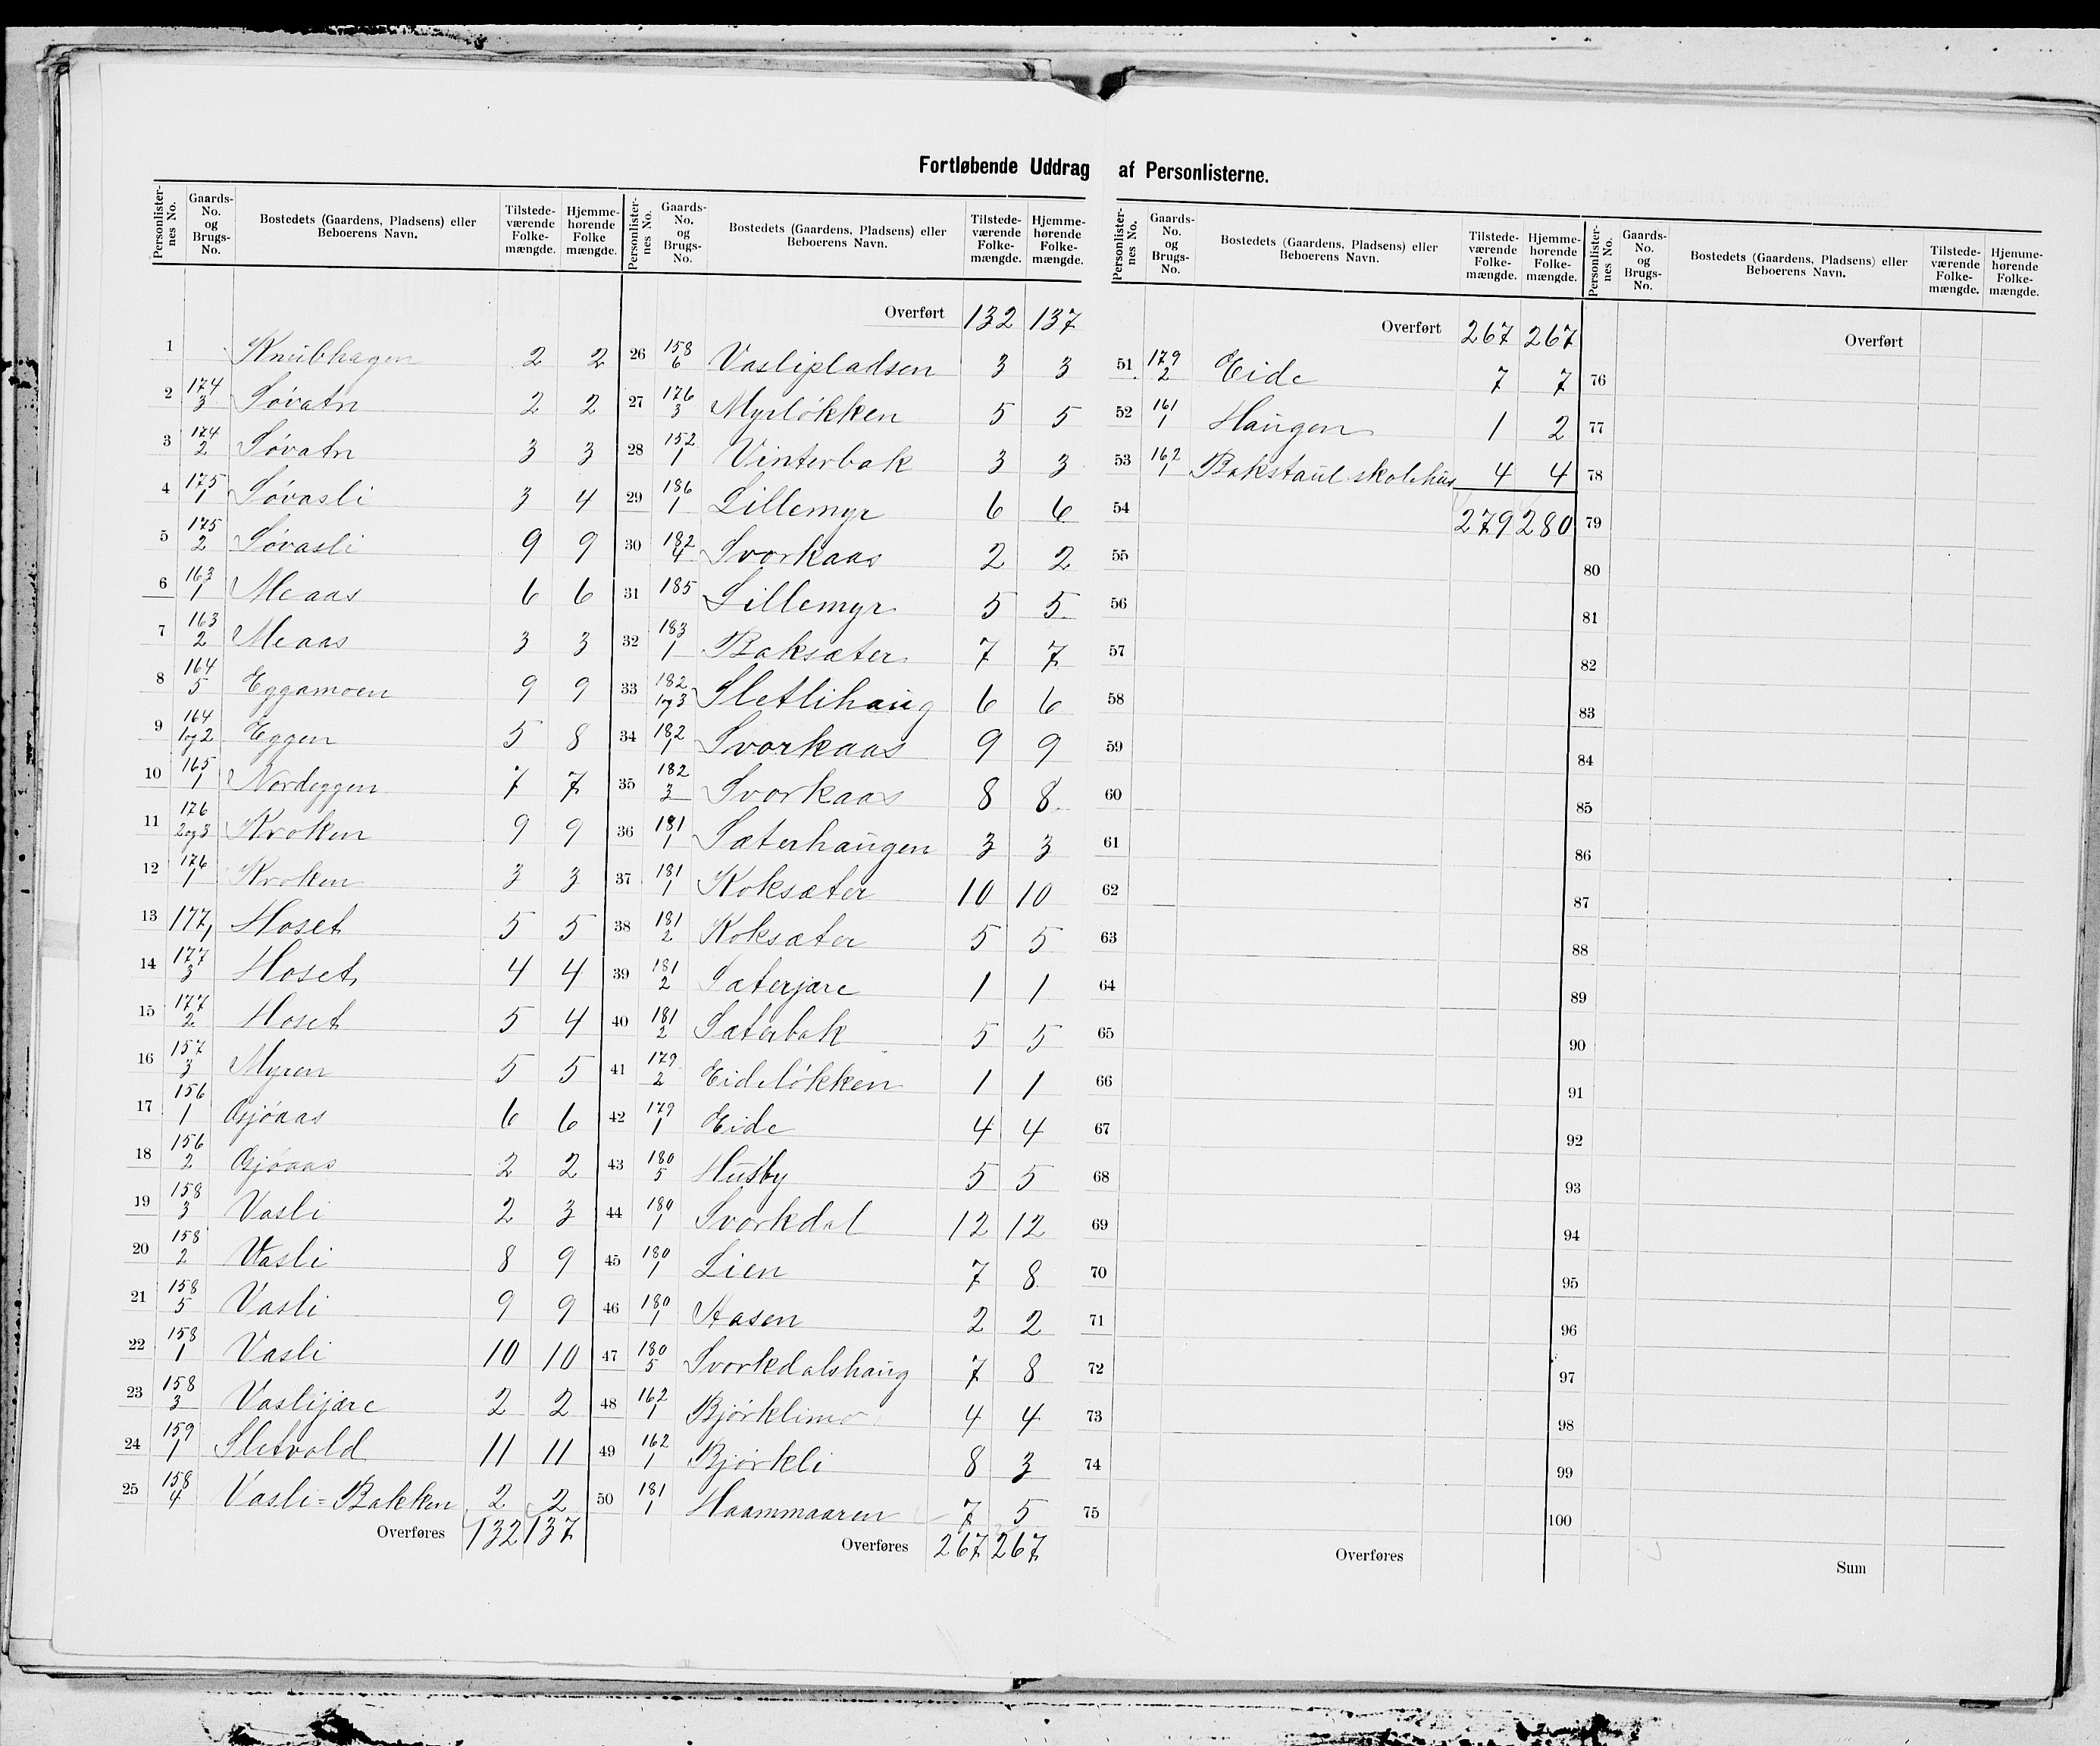 Fortløbende Uddrag af Personlisterne.
Personlister-nes No. Gaards-No. og Brugs-No. Bostedets (Gaardens, Pladsens) eller Beboerens Navn. Tilstede-værende Folke-mængde. Hjemme-hørende Folke mængde.
1 Knubhagen 2 2
2 174/3 Søvatn 2 2
3 174/2 Søvatn 3 3
4 175/1 Søvasli 3 4
5 175/2 Søvasli 9 9
6 163/1 Meaas 6 6
7 163/2 Meaas 3 3
8 164/5 Eggamoen 9 9
9 164/1og2 Eggen 5 8
10 165/1 Nordeggen 7 7
11 176/2og3 Kroken 9 9
12 176/1 Kroken 3 3
13 177,1 Hoset 5 5
14 177/3 Hoset 4 4
15 177/2 Hoset 5 4
16 157/3 Myren 5 5
17 156/1 Gjøaas 6 6
18 156/2 Gjøaas 2 2
19 158/3 Vasli 2 3
20 158/2 Vasli 8 9
21 158/5 Vasli 9 9
22 158/1 Vasli 10 10
23 158/3 Vaslijære 2 2
24 159/1 Sletvold 11 11
25 158/4 Vasli=Bakken 2 2
Overføres 132 137
Personlister-nes No. Gaards-No. og Brugs-No. Bostedets (Gaardens, Pladsens) eller Beboerens Navn. Tilstede-værende Folke-mængde. Hjemme-hørende Folke-mængde.
Overført 132 137
26 158/6 Vaslipladsen 3 3
27 176/3 Myrløkken 5 5
28 152/1 Vinterbak 3 3
29 186/1 Lillemyr 6 6
30 182/4 Svorkaas 2 2
31 185 Lillemyr 5 5
32 183/1 Baksæter 7 7
33 182/1og3 Sletlihaug 6 6
34 182/1 Svorkaas 9 9
35 182/3 Svorkaas 8 8
36 181/1 Sæterhaugen 3 3
37 181/1 Koksæter 10 10
38 181/2 Koksæter 5 5
39 181/2 Sæterjære 1 1
40 181/2 Sæterbak 5 5
41 179/2 Eideløkken 1 1
42 179/1 Eide 4 4
43 180/5 Husby 5 5
44 180/1 Svorkdal 12 12
45 180/1 Lien 7 8
46 180/1 Aasen 2 2
47 180/5 Svorkdalshaug 7 8
48 162/1 Bjørklimo 4 4
49 162/1 Bjørkli 8 3
50 181/1 Haammaaren 7 5
Overføres 267 267
Personlister-nes No. Gaards-No. og Brugs-No. Bostedets (Gaardens, Pladsens) eller Beboerens Navn. Tilstede-værende Folke-mængde. Hjemme-hørende Folke-mængde.
Overført 267 267
51 179/2 Eide 7 7
52 161/1 Haugen 1 2
53 162/1 Bakstaul skolehus 4 4
54 279 280
55
56
57
58
59
60
61
62
63
64
65
66
67
68
69
70
71
72
73
74
75
Overføres
Personlister-nes No. Gaards-No. og Brugs-No. Bostedets (Gaardens, Pladsens) eller Beboerens Navn. Tilstede-værende Folke-mængde. Hjemme-hørende Folke-mængde.
Overført
76
77
78
79
80
81
82
83
84
85
86
87
88
89
90
91
92
93
94
95
96
97
98
99
100
Sum